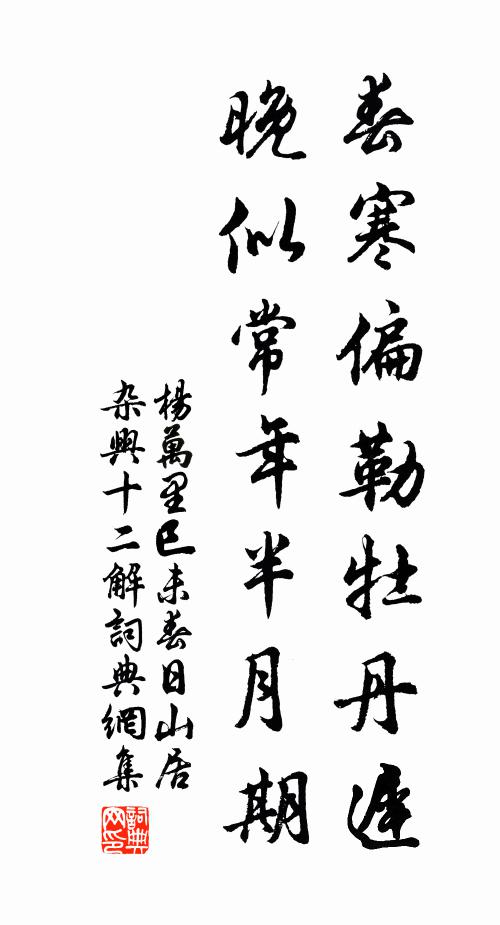 春寒偏勒牡丹遲
晚似常年半月期
楊萬里己未春日山居
杂興十二解詞典網集
詞典
网印